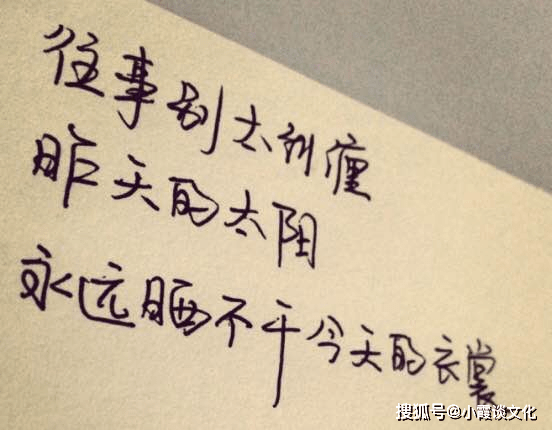 往事别太纠缠
昨天的太阳
永远晒不干今天的衣裳
搜狐号@小霞谈文化